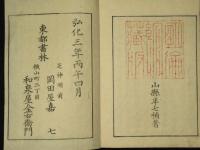 山縣半七補音
弘化三年丙午四月
芝神明前
岡田屋嘉七
東都書林
横山町三丁目
和泉屋金右衛門